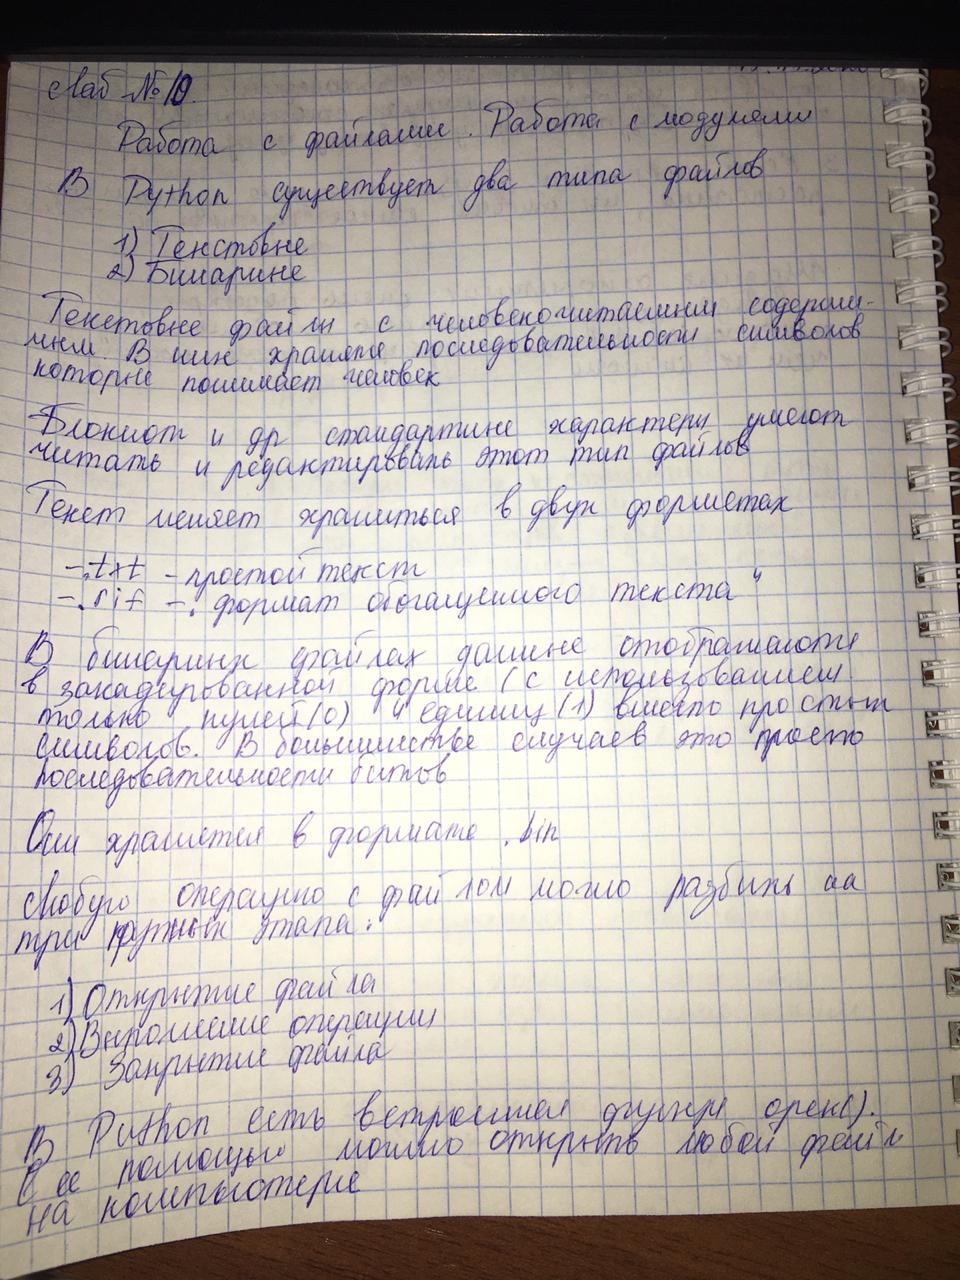 Лаб №10.
Работа с файлами. Работа с модулями
В Python существует два типа файлов
1) Текстовые
2) Бинарные
Текстовые файлы с человекочитаемым содержи-
мым. В них хранятся последовательности символов
которые понимает человек
Блокнот и др стандартные характеры умеют
читать и редактировать этот тип файлов
Текст может храниться в двух форматах
-.txt - простой текст
-.rif - "формат обогащенного текста"
В бинарных файлах данные отображаются
в закодированной форме (с использованием
только нулей(0) и единиц(1) вместо простых
символов. В большинстве случаев это просто
последовательности битов
Они хранятся в формате .bin
Любую операцию с файлом можно разбить на
три крупных этапа:
1) Открытие файла
2) Выполнение операции
3) Закрытие файла
В Python есть встроенная функция open().
С ее помощью можно открыть любой файл
на компьютере